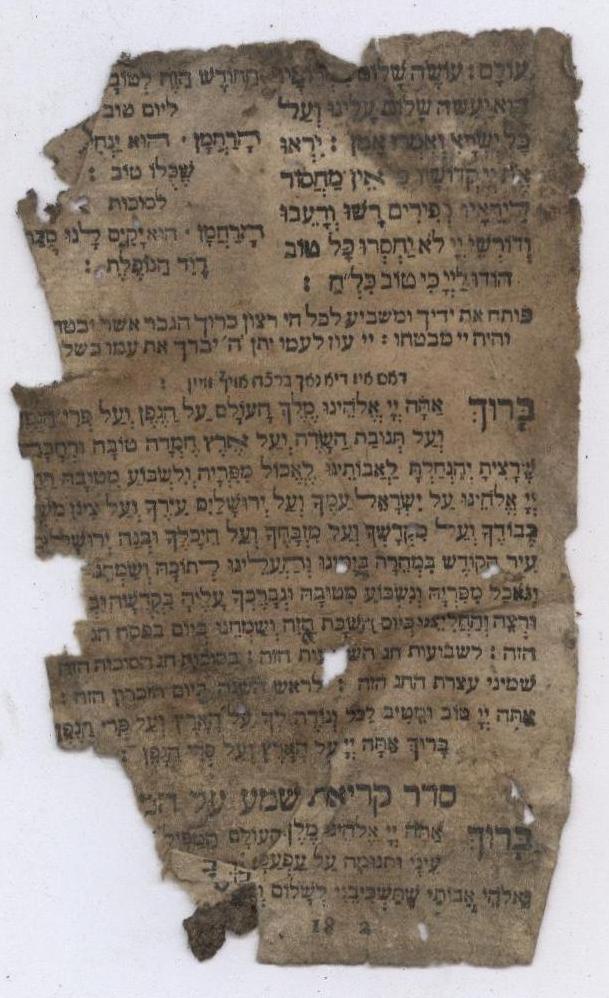 עולם : עושה שלום
הוא יעשה שלום עלינו ועל
כל ישראל ואמרו אמן : יראו
את יי קדושיו כי אין מחסור
ליראיו כפירים רשו ורעבו
ודורשי יי לא יחסרו כל טוב
הודו ליי כי טוב כל״ח :
החודש הזה לטובה
ליום טוב
הרחמן · הוא
שכולו טוב :
לסוכות
הרחמן · הוא יקים לנו
דוד הנופלת :
פותח את ידיך ומשביע לכל חי רצון ברוך הגבר אשר יבטח
והיה יי מבטחו : יי עוז לעמו יתן ה׳ יברך את עמו בשל
ברוך אתה יי אלהינו מלך העולם על הגפן ועל פרי הגפן
ועל תנובת השדה ועל ארץ חמדה טובה ורחבה
שרצית והנחלת לאבותינו לאכול מפריה ולשבוע מטובה
יי אלהינו על ישראל עמך ועל ירושלים עירך ועל ציון
כבודך ועל מקדשך ועל מזבחך ועל היכלך ובנה
עיר הקודש במהרה בימינו והעלינו לתוכה ושמחנו
ונאכל מפריה ונשבוע מטובה ונברכך עליה בקדושה
ורצה והחליצנו ביום השבת הזה ושמחנו ביום בפסח חג
הזה : לשבועות חג הזה : בסוכות חג הסוכות הזה
שמיני עצרת החג הזה : לראש השנה ביום הזכרון הזה :
אתה יי טוב ומטיב לכל ונודה לך על הארץ ועל פרי הגפן
ברוך אתה יי על הארץ ועל פרי הגפן :
סדר קריאת שמע על
ברוך אתה יי אלהינו מלך העולם המפיל
עיני ותנומה על עפעפי
אלהי אבותי שתשכיבני לשלום
18 2